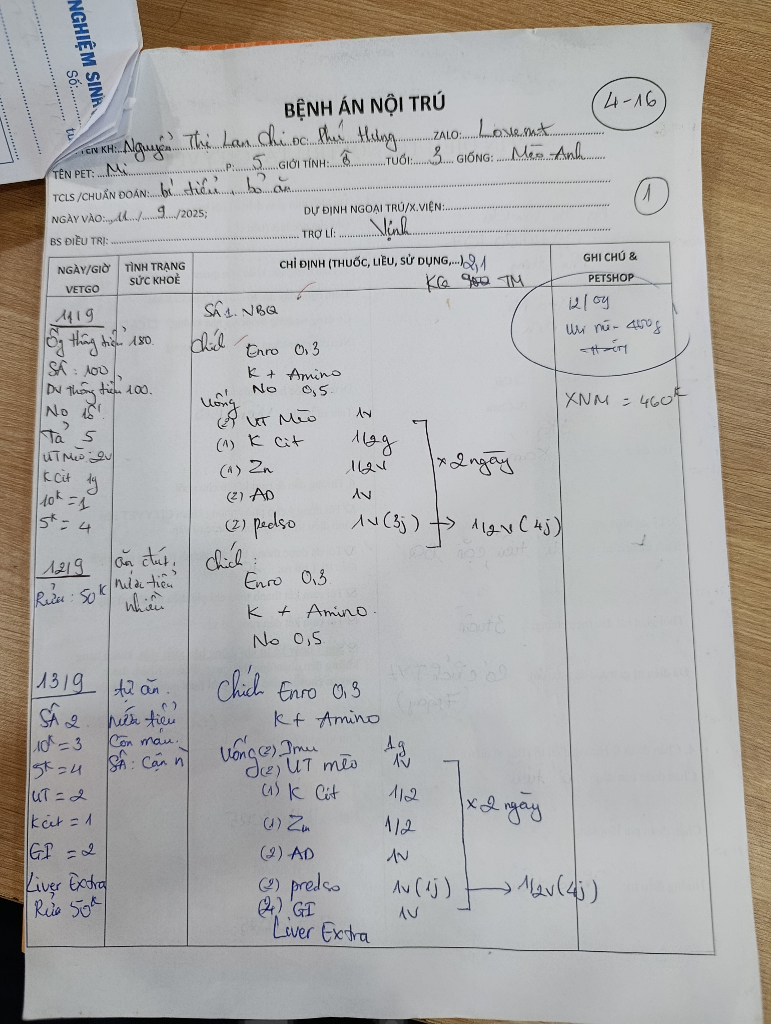 NGHIỆM SINH
Số:
4-16
BỆNH ÁN NỘI TRÚ
TÊN KH: Nguyễn Thị Lan Chi ĐC: Phú Hưng ZALO: Lovemt
TÊN PET: Mi P: 5 GIỚI TÍNH: TUỔI: 3 GIỐNG: Mèo Anh
TCLS /CHUẨN ĐOÁN: bí tiểu, bỏ ăn
1
NGÀY VÀO: 11 / 9 /2025; DỰ ĐỊNH NGOẠI TRÚ/X.VIỆN:
BS ĐIỀU TRỊ: TRỢ LÍ: Vịnh
NGÀY/GIỜ VETGO
TÌNH TRẠNG SỨC KHOẺ
CHỈ ĐỊNH (THUỐC, LIỀU, SỬ DỤNG,...) 2,1
KQ TM
GHI CHÚ & PETSHOP
11/9
Ống thông tiểu 180.
SÂ: 100
DV thông tiểu 100.
No 15
Tả 5
UT Mèo: 2v
K Cit 1g
10k = 1
5k = 4
SÂ 1. NBQ
Chích Enro 0,3
K + Amino
No 0,5.
Uống
(2) UT Mèo 1v
(1) K Cit 1/2g
(1) Zn 1/2v
(2) AD 1v
(2) predso 1v (3j) → 1/2v (4j)
x 2 ngày
12/09
460g
XNM = 460k
12/9
Rửa: 50k
ăn chút,
nước tiểu
nhiều
Chích:
Enro 0,3
K + Amino.
No 0,5
13/9
SÂ 2
10k = 3
5k = 4
UT = 2
K cit = 1
GI = 2
Liver Extra
Rửa 50k
tự ăn.
nước tiểu
còn máu.
SÂ: Cặn
Chích Enro 0,3
K + Amino
Uống (2) Imu 1g
(2) UT mèo 1v
(1) K Cit 1/2
(1) Zn 1/2
(2) AD 1v
(2) predso 1v (1j) → 1/2v (4j)
(2) GI 1v
Liver Extra
x 2 ngày